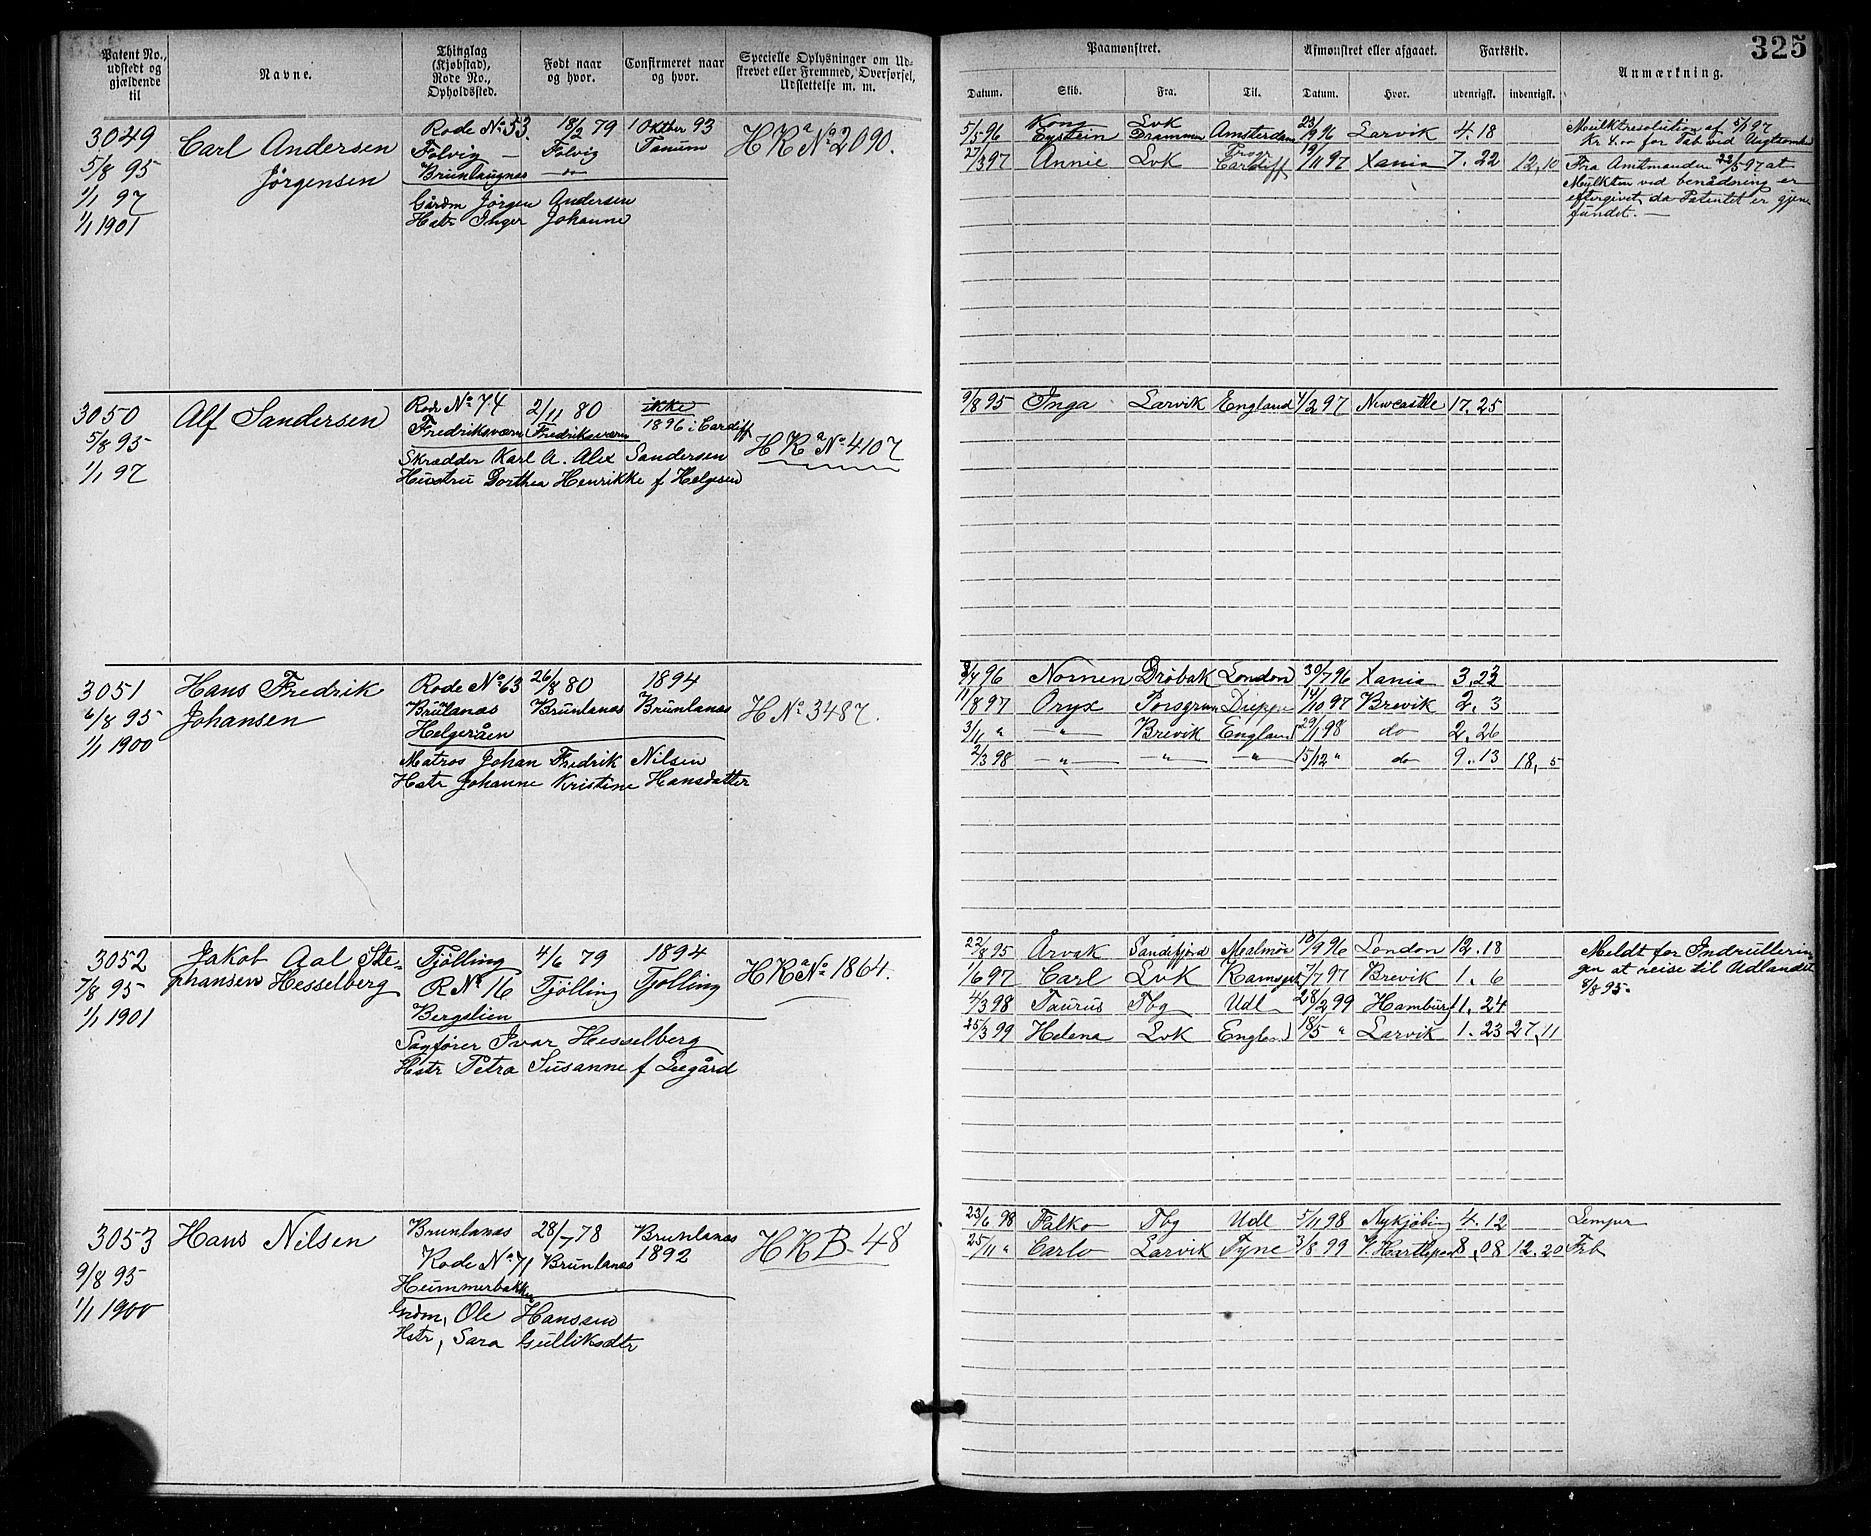 325
Patent No., udstedt og gjældende til
Navne.
Thinglag (Kjøbstad), Rode No., Opholdssted.
Født naar og hvor.
Confirmeret naar og hvor.
Specielle Oplysninger om Udstrevet eller Fremmed, Overførsel, Udslettelse m. m.
Paamønstret.
Afmønstret eller afgaaet.
Fartstid.
Anmærkning.
Datum. Skib. Fra. Til. Datum. Hvor. udenrigsk. indenrigsk.
3049 Carl Andersen Jørgensen
5/8 95
1/1 97
1/1 1901
Rode No 53. 18/2 79 1 Oktber 93 H Ra No 2090.
Folvig Folvig Tanum
Brunlaugnes
Gårdm Jörgen Andersen
Hstr Inger Johanne
5/5 96 Kong Eystein Lvk Drammen Amsterdam 23/9 96 Larvik 4.18
27/3 97 Annie Lvk Cardiff 19/11 97 Xania 7.22 12,10
Mulktresolution af 5/1 97
Kr 4.00 for Tab ved Uagtsomhed
Fra Amtmanden 22/5 97 at
Mulkten ved benådning er
eftergivet, da Patentet er gjen
fundet.
3050 Alf Sandersen
5/8 95
1/1 97
Rode No 74 2/11 80 ikke
Fredriksværn Fredriksværn 1896 i Cardiff
H Ra No 4107
Skrædder Karl A. Alex Sandersen
Hustru Dorthea Henrikke f Helgesen
9/8 95 Inga Larvik England 4/2 97 Newcastle 17.25
3051 Hans Fredrik Johansen
6/8 95
1/1 1900
Rode No 63 26/8 80 1894
Brunlanas Brunlanas Brunlanas H No 3487.
Helgeråen
Matros Johan Fredrik Nilsen
Hstr Johanne Kristine Hansdatter
8/4 96 Nornen Dröbak London 30/7 96 Xania 3.23
11/8 97 Oryx Porsgrun Dieppe 14/10 97 Brevik 2.3
3/11 " —"— Brevik England 29/1 98 do 2.26
2/3 98 —"— —"— —"— 15/12 " do 9.13 18,5
3052 Jakob Aal Ste=
phansen Hesselberg
7/8 95
1/1 1901
Tjölling 4/6 79 1894 H Ra No 1864.
R No 16 Tjölling Tjolling
Bergslien
Sagfører Ivar Hesselberg
Hstr Petra Susanne f Leegård
22/8 95 Arvak Sandefjord Mealmø 18/9 96 London 12.18
1/6 97 Carl Lvk Ramsgat 7/7 97 Brevik 1.6
4/3 98 Taurus Tbg Udl 28/2 99 Hamburg 11.24
25/3 99 Helena Lvk England 18/5 " Larvik 1.23 27,11
Meldt for Indrullerin
gen at reise til Udlandet
8/8 95.
3053 Hans Nilsen
9/8 95
1/1 1900
Brunlanas 28/7 78 Brunlanas H R B - 48
Rode No 71 Brunlanas 1892
Hummerbakken
Grdm, Ole Hanssen
Hstr, Sara Gulliksdtr
23/6 98 Falko Tbg Udl 5/11 98 Nykjöbing 4.12
25/11 " Carlo Larvik Tyne 3/8 99 V. Hartlepool 8,08 12.20